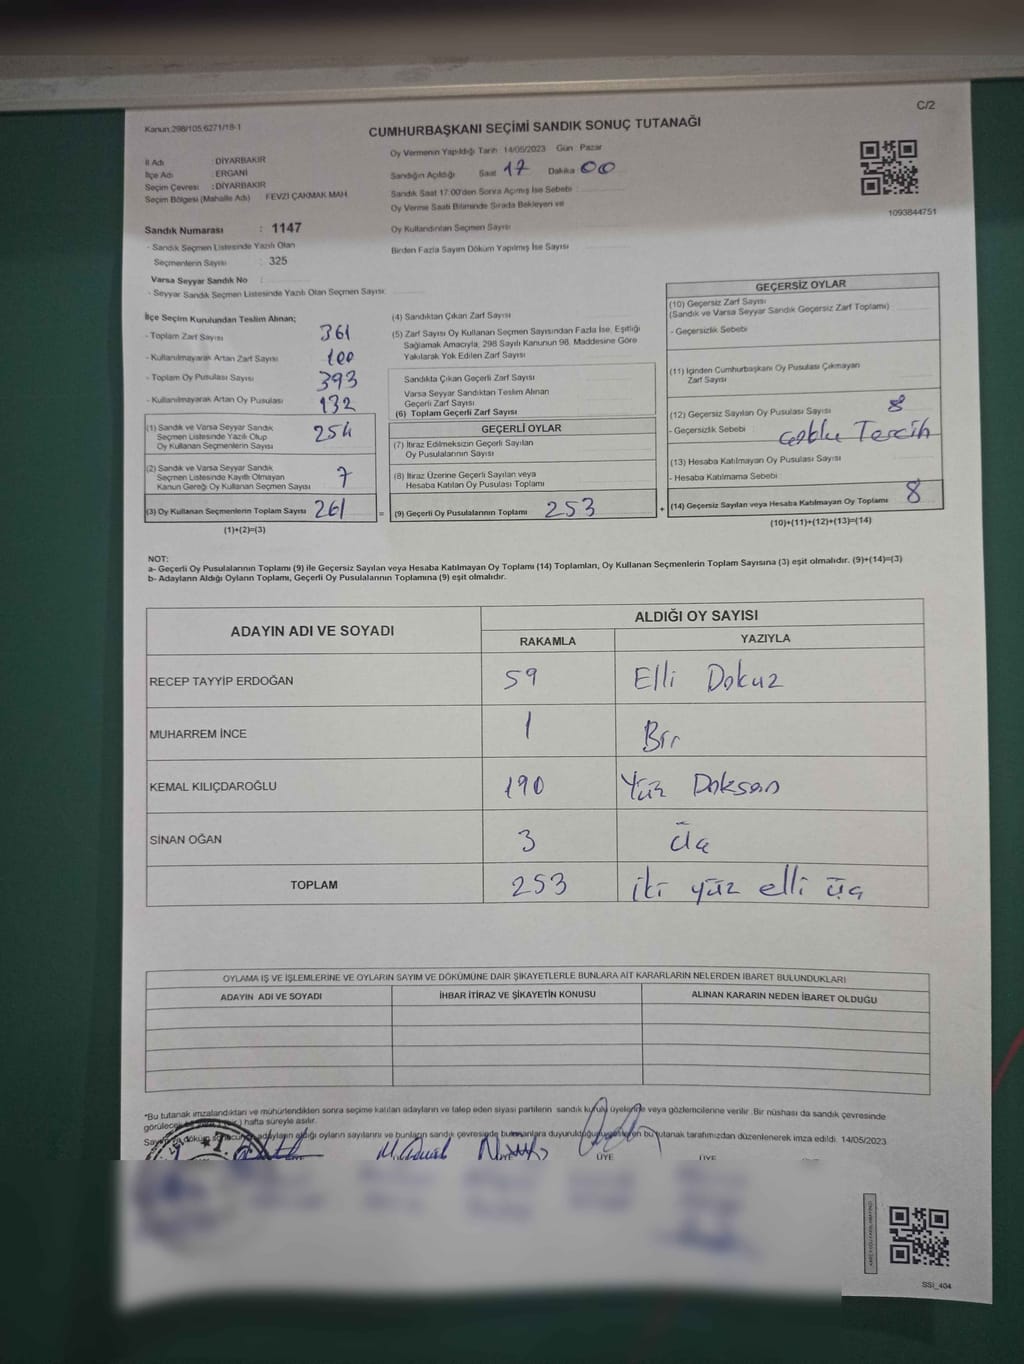 C/2
Kanun:298/105,6271/18-1
CUMHURBAŞKANI SEÇİMİ SANDIK SONUÇ TUTANAĞI
İl Adı : DİYARBAKIR
İlçe Adı : ERGANİ
Seçim Çevresi : DİYARBAKIR
Seçim Bölgesi (Mahalle Adı) FEVZİ ÇAKMAK MAH.
Oy Vermenin Yapıldığı Tarih : 14/05/2023 Gün : Pazar
Sandığın Açıldığı Saat 17 Dakika 00
Sandık Saat 17:00'den Sonra Açılmış İse Sebebi :
Oy Verme Saati Bitiminde Sırada Bekleyen ve
Oy Kullandırılan Seçmen Sayısı
Birden Fazla Sayım Döküm Yapılmış İse Sayısı
1093844751
Sandık Numarası : 1147
- Sandık Seçmen Listesinde Yazılı Olan
Seçmenlerin Sayısı : 325
Varsa Seyyar Sandık No
- Seyyar Sandık Seçmen Listesinde Yazılı Olan Seçmen Sayısı:
İlçe Seçim Kurulundan Teslim Alınan;
- Toplam Zarf Sayısı 361
- Kullanılmayarak Artan Zarf Sayısı 100
- Toplam Oy Pusulası Sayısı 393
- Kullanılmayarak Artan Oy Pusulası 132
(1) Sandık ve Varsa Seyyar Sandık
Seçmen Listesinde Yazılı Olup
Oy Kullanan Seçmenlerin Sayısı 254
(2) Sandık ve Varsa Seyyar Sandık
Seçmen Listesinde Kayıtlı Olmayan
Kanun Gereği Oy Kullanan Seçmen Sayısı 7
(3) Oy Kullanan Seçmenlerin Toplam Sayısı 261
(1)+(2)=(3)
(4) Sandıktan Çıkan Zarf Sayısı
(5) Zarf Sayısı Oy Kullanan Seçmen Sayısından Fazla İse, Eşitliği
Sağlamak Amacıyla, 298 Sayılı Kanunun 98. Maddesine Göre
Yakılarak Yok Edilen Zarf Sayısı
Sandıkta Çıkan Geçerli Zarf Sayısı
Varsa Seyyar Sandıktan Teslim Alınan
Geçerli Zarf Sayısı
(6) Toplam Geçerli Zarf Sayısı
GEÇERLİ OYLAR
(7) İtiraz Edilmeksizin Geçerli Sayılan
Oy Pusulalarının Sayısı
(8) İtiraz Üzerine Geçerli Sayılan veya
Hesaba Katılan Oy Pusulası Toplamı
= (9) Geçerli Oy Pusulalarının Toplamı 253
GEÇERSİZ OYLAR
(10) Geçersiz Zarf Sayısı
(Sandık ve Varsa Seyyar Sandık Geçersiz Zarf Toplamı)
- Geçersizlik Sebebi
(11) İçinden Cumhurbaşkanı Oy Pusulası Çıkmayan
Zarf Sayısı
(12) Geçersiz Sayılan Oy Pusulası Sayısı 8
- Geçersizlik Sebebi : Tercih
(13) Hesaba Katılmayan Oy Pusulası Sayısı
- Hesaba Katılmama Sebebi :
+ (14) Geçersiz Sayılan veya Hesaba Katılmayan Oy Toplamı 8
(10)+(11)+(12)+(13)=(14)
NOT:
a- Geçerli Oy Pusulalarının Toplamı (9) ile Geçersiz Sayılan veya Hesaba Katılmayan Oy Toplamı (14) Toplamları, Oy Kullanan Seçmenlerin Toplam Sayısına (3) eşit olmalıdır. (9)+(14)=(3)
b- Adayların Aldığı Oyların Toplamı, Geçerli Oy Pusulalarının Toplamına (9) eşit olmalıdır.
ADAYIN ADI VE SOYADI ALDIĞI OY SAYISI
RAKAMLA YAZIYLA
RECEP TAYYİP ERDOĞAN 59 Elli Dokuz
MUHARREM İNCE 1 Bir
KEMAL KILIÇDAROĞLU 190 Yüz Doksan
SİNAN OĞAN 3 Üç
TOPLAM 253 iki yüz elli üç
OYLAMA İŞ VE İŞLEMLERİNE VE OYLARIN SAYIM VE DÖKÜMÜNE DAİR ŞİKAYETLERLE BUNLARA AİT KARARLARIN NELERDEN İBARET BULUNDUKLARI
ADAYIN ADI VE SOYADI İHBAR İTİRAZ VE ŞİKAYETİN KONUSU ALINAN KARARIN NEDEN İBARET OLDUĞU
*Bu tutanak imzalandıktan ve mühürlendikten sonra seçime katılan adayların ve talep eden siyasi partilerin sandık kurulu üyelerine veya gözlemcilerine verilir. Bir nüshası da sandık çevresinde
hafta süreyle asılır.
adayların aldığı oyların sayılarını ve bunların sandık çevresinde bulunanlara bu tutanak tarafımızdan düzenlenerek imza edildi. 14/05/2023
ÜYE ÜYE
SSI_404